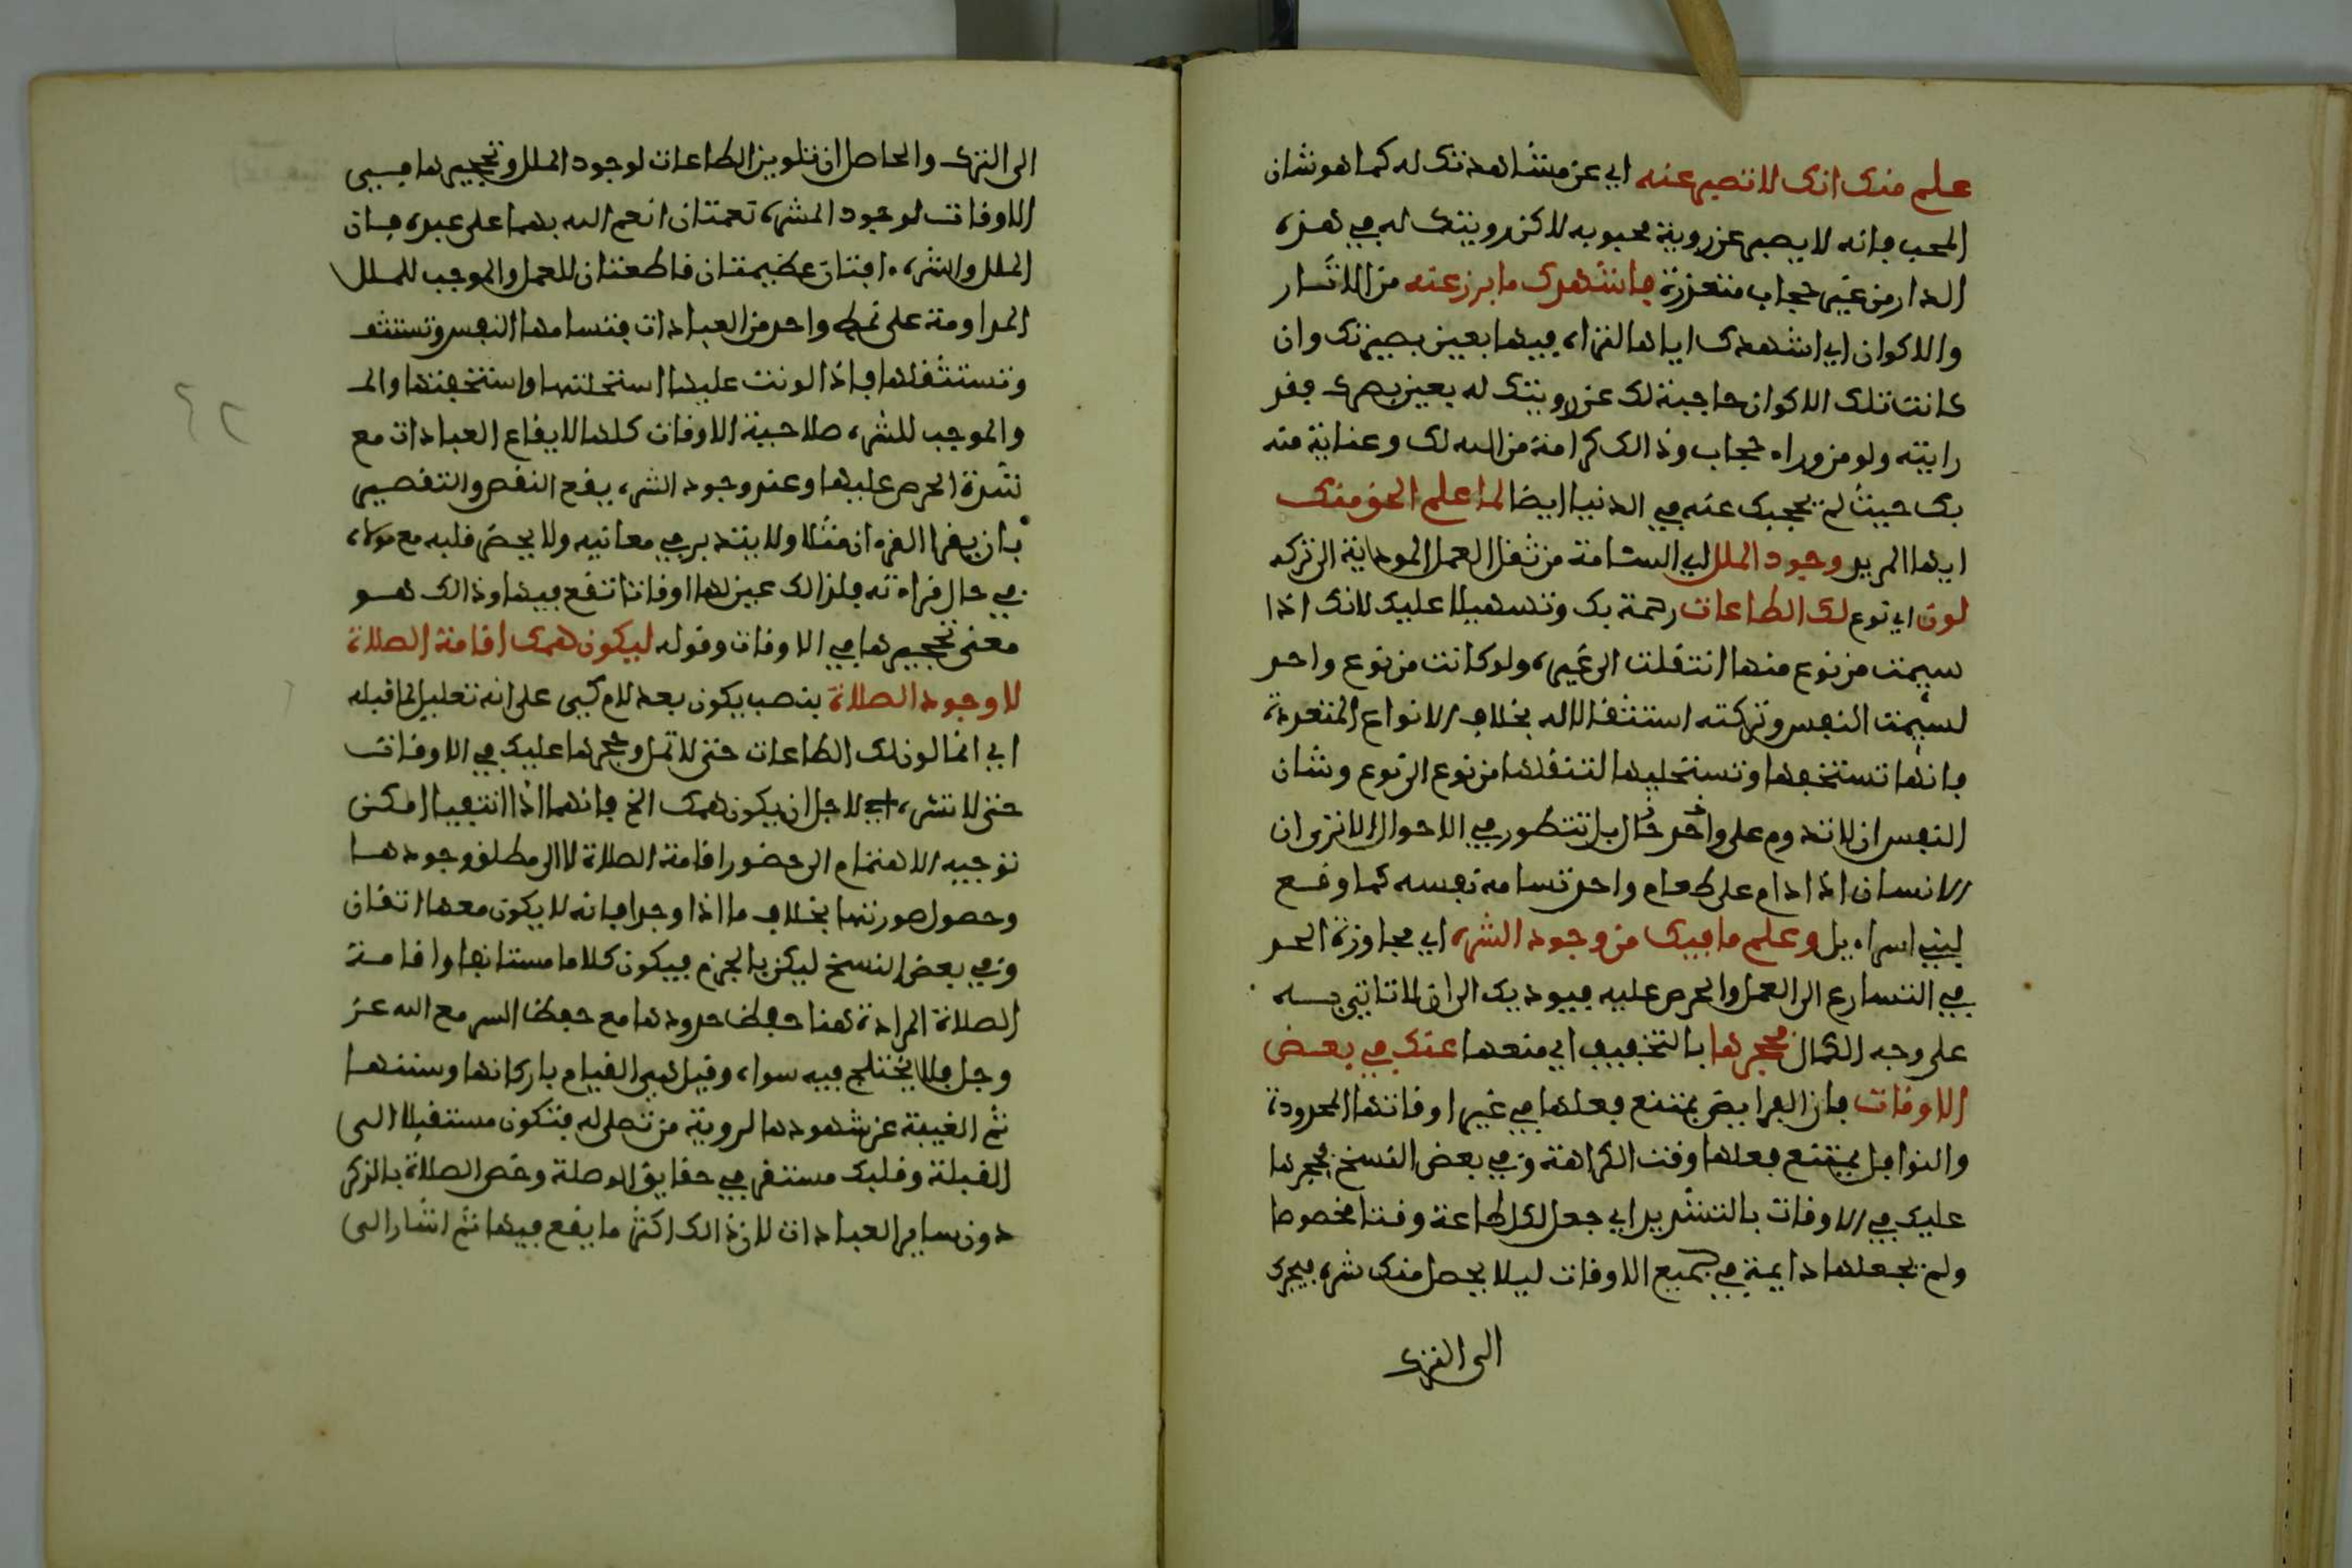 علم منك انك لا تصبر عنه اي عن مشاهدتك له كما هو شان
المحب فانه لا يصبر عن روية محبوبه لاكن رويتك له في هذه
الدار من غير حجاب متعذرة فاشهدك ما برز عنه من الاثار
والاكوان اي اشهدك اياها لتراه فيها بعين بصيرتك وان
كانت تلك الاكوان حاجبة لك عن رويتك له بعين بصرك فقد
رايته ولو من وراء حجاب وذالك كرامة من الله لك وعناية منه
بك حيث لم يحجبك عنه في الدنيا ايضا لما علم الحق منك
ايها المريد وجود الملل اي السئامة من ثقل العمل المودية الى تركه
لون اي نوع لك الطاعات رحمة بك وتسهيلا عليك لانك اذا
سيمت من نوع منها انتقلت الى غيره ولو كانت من نوع واحد
لسيمت النفس وتركته استثقالا له بخلاف الانواع المتعددة
فانها تستخفها وتستحليها لتنقلها من نوع الى نوع وشان
النفس ان لا تدوم على واحد حال بل تتطور في الاحوال الا ترى ان
الانسان اذا دام على طعام واحد تسامه نفسه كما وقع
لبني اسراءيل وعلم ما فيك من وجود الشره اي مجاوزة الحد
في التسارع الى العمل والحرص عليه فيوديك الى ان لا تاتي به
على وجه الكمال فحجرها بالتخفيف اي منعها عنك في بعض
الاوقات فان الفرايض يمتنع فعلها في غير اوقاتها المحدودة
والنوافل يمتنع فعلها وقت الكراهة وفي بعض النسخ فحجرها
عليك في الاوقات بالتشديد اي جعل لكل طاعة وقتا مخصوصا
ولم يجعلها دايمة في جميع الاوقات ليلا يحصل منك شره فيجرك
الى الترك
الى الترك والحاصل ان تلوين الطاعات لوجود الملل وتحجيرها في
الاوقات لوجود الشره نعمتان انعم الله بهما على عبده فان
الملل والشره ءافتان عظيمتان قاطعتان للعمل والموجب للملل
المداومة على نمط واحد من العبادات فتسامها النفس وتستثقـ
وتستثقلها فاذا لونت عليها استحلتها واستخفتها والـ
والموجب للشره صلاحية الاوقات كلها لايقاع العبادات مع
شدة الحرص عليها وعند وجود الشره يقع النقص والتقصير
بان يقرا القرءان مثلا ولا يتدبر في معانيه ولا يحضر قلبه مع مولاه
في حال قراءته فلذالك عين لها اوقاتا تقع فيها وذالك هو
معنى تحجيرها في الاوقات وقوله ليكون همك اقامة الصلاة
لا وجود الصلاة بنصب يكون بعد لام كي على انه تعليل لما قبله
اي انما لون لك الطاعات حتى لا تمل وحجرها عليك في الاوقات
حتى لا تشره اي لاجل ان يكون همك الخ فانهما اذا انتفيا امكن
توجيه الاهتمام الى حضور اقامة الصلاة لا الى مطلق وجودها
وحصول صورتها بخلاف ما اذا وجدا فانه لا يكون معها اتقان
وفي بعض النسخ ليكن بالجزم فيكون كلاما مستانفا واقامة
الصلاة المرادة هنا حفظ حدودها مع حفظ السر مع الله عز
وجل فلا يختلج فيه سواه وقيل هي القيام باركانها وسننها
ثم الغيبة عن شهودها لروية من تصلى له فتكون مستقبلا الى
القبلة وقلبك مستغرق في حقايق الوصلة وخص الصلاة بالذكر
دون ساير العبادات لان ذالك اكثر ما يقع فيها ثم اشار الى